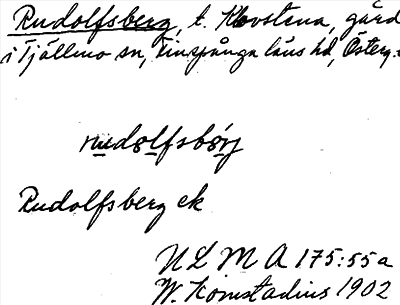 Rudolfsberg, t. Hovstena, gård
i Tjällmo sn, Finspånga läns hd, Österg.
rudolfsbörj
Rudolfsberg ek
ULMA 175:55a
W. Komstadius 1902